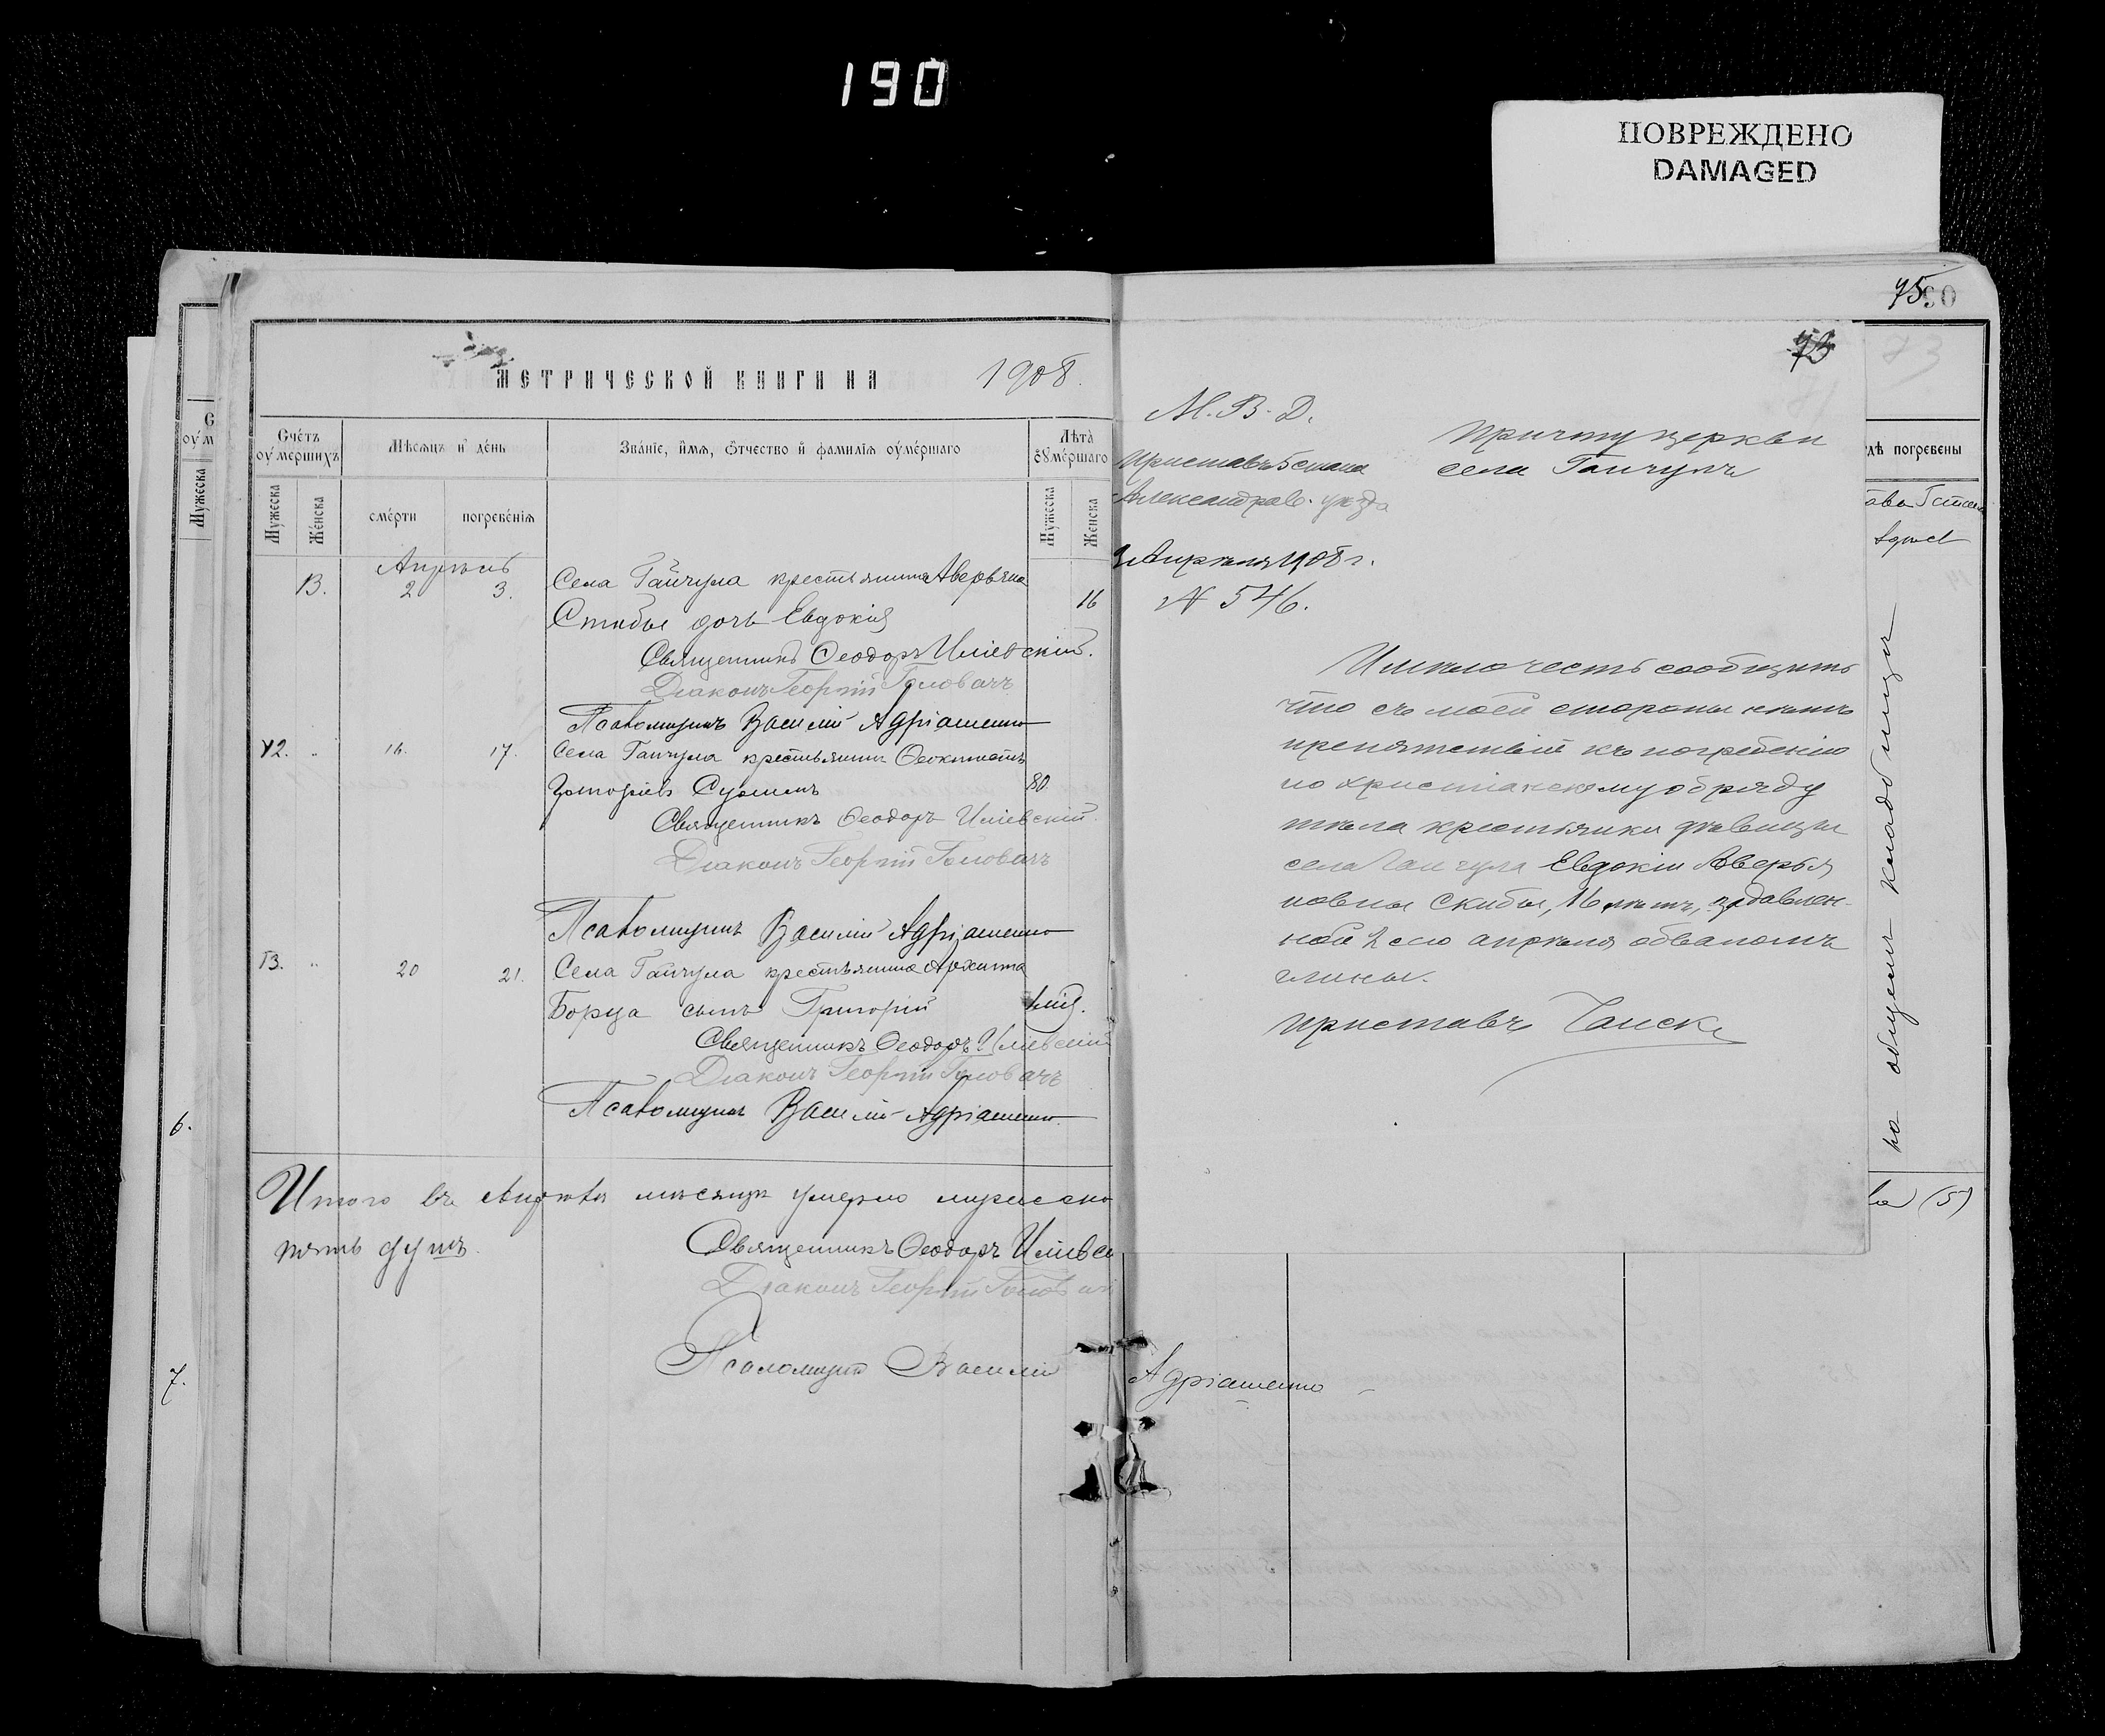 190
ПОВРЕЖДЕНО
DAMAGED
МЕТРИЧЕСКОЙ КНИГИ НА 1908.
Счётъ оумершихъ
Мѣсяцъ и день
Званіе, имя, отчество и фамилія оумершаго
Лѣта оумершаго
Мужеска
Женска
смерти
погребенія
Мужеска
Женска
Апрѣль
13. 2 3. Села Гайчула крестьянина Аверьяна
Скибы дочь Евдокія 16
Священникъ Ѳеодоръ Иліевскій.
Діаконъ Георгій Головачъ
Псаломщикъ Василій Адріашенко
12. " 16. 17. Села Гайчула крестьянинъ Ѳеоктистъ
Григоріевъ 80
Священникъ Ѳеодоръ Иліевскій.
Діаконъ Георгій Головачъ
Псаломщикъ Василій Адріашенко
13. " 20 21. Села Гайчула крестьянина Архипа
Борца сынъ Григорій
Священникъ Ѳеодоръ Иліевскій
Діаконъ Георгій Головачъ
Псаломщикъ Василій Адріашенко
Итого въ Апрѣлѣ мѣсяцѣ умерло мужеска
пять душъ.
Священникъ Ѳеодоръ Иліевс
Діаконъ Георгій Голов
Псаломщикъ Василій Адріашенко
6.
7.
75.
90
73
М. В. Д.
Приставъ 5 стана
Александров. уѣзда
Апрѣля 1908 г.
№ 546.
Причту церкви
села Гайчулъ
Имѣю честь сообщить
что съ моей стороны нѣтъ
препятствій къ погребенію
по христіанскому обряду
тѣла крестьянки дѣвицы
села Гайчула Евдокіи Аверья
новны Скибы, 16 лѣтъ, задавлен-
ной 2 сего апрѣля обваломъ
глины.
Приставъ
дѣ погребены
на общемъ кладбищѣ
ва (5)